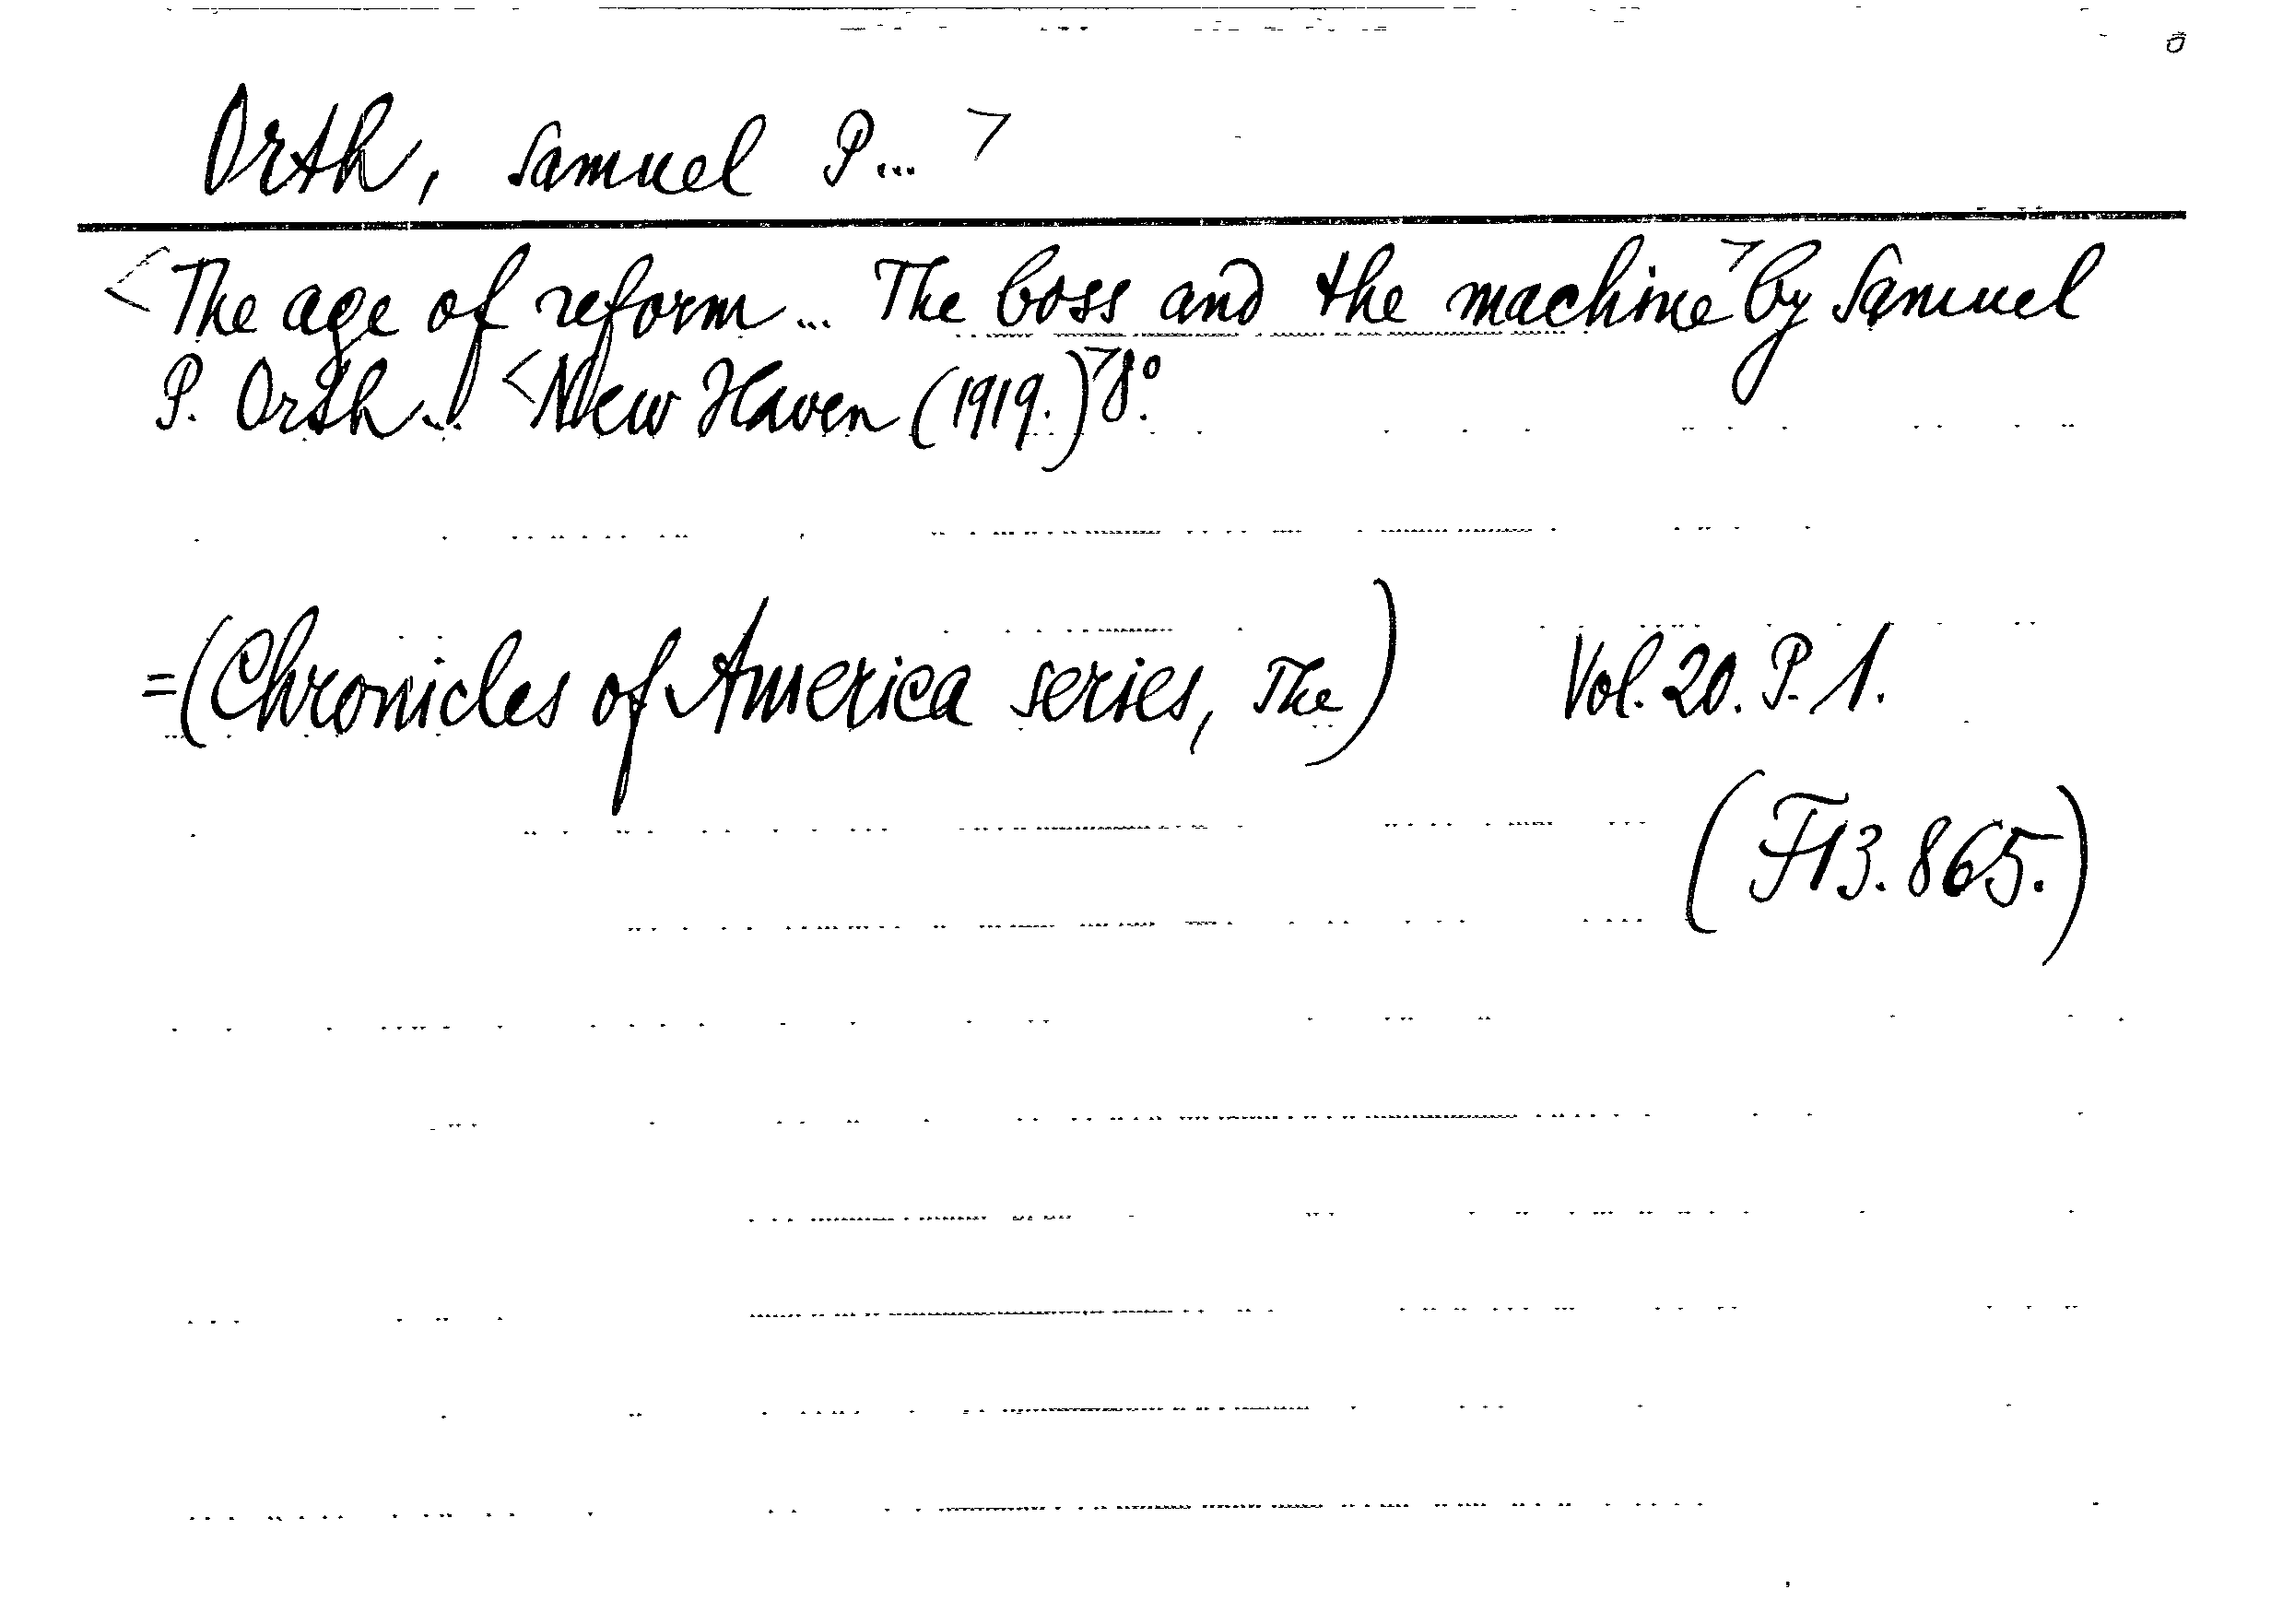 Orth, Samuel P... >
<The age of reform... The boss and the machine> by Samuel
P. Orth... <New Haven (1919.)> 8°.
=(Chronicles of America series, The) Vol. 20. P. 1.
(F13.865.)